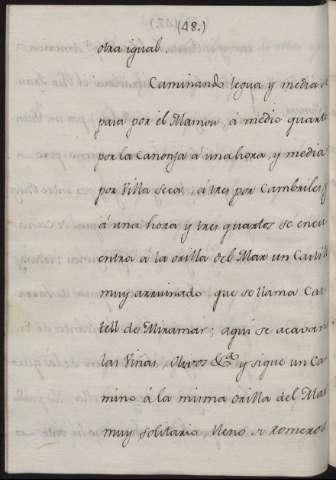 (48.)
otra igual.
Caminando legua y media se
pasa por el Mamou, á medio quarto
por la Canonja á una hora, y media
por Villa Seca, a tres por Cambriles, y
á una hora y tres quartos se encu
entra á la orilla del Mar un Castill
muy arruinado que se llama Cas
tell de Miramar; aqui se acavan
las Viñas, Olivos &ª y sigue un Ca
mino á la misma orilla del Mar
muy solitario, lleno de romero